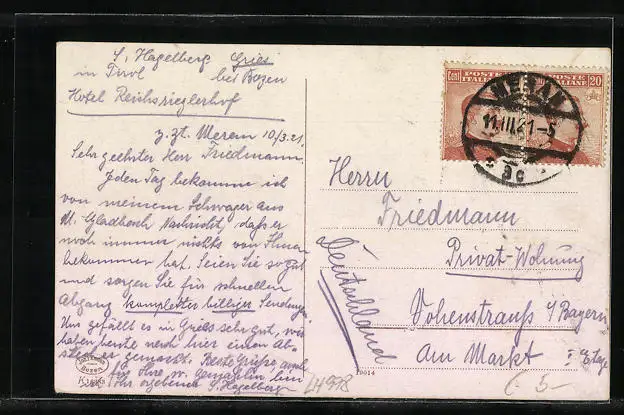 S. Hagelberg Gries
in Tirol bei Bozen
Hotel Reichsrieglerhof
z. Zt. Meran 10/3.21.
Sehr geehrter Herr Friedmann.
Jeden Tag bekomme ich
von meinem Schwager aus
M. Gladbach Nachricht, dass er
noch immer nichts von Ihnen
bekommen hat. Seien Sie so gut
und sorgen Sie für schnellen
Abgang kompletter billiger Sendung.
Uns gefällt es in Gries sehr gut, wir
haben heute nach hier einen Ab-
stecher gemacht. Beste Grüsse auch
für Ihre w. Gemahlin bin
Ihr ergebener S. Hagelberg
Cent POSTE ITALIANE
POSTE ITALIANE 20
MERAN
11.III.21-5
Herrn
Friedmann
Privat-Wohnung
Vohenstrauß i/Bayern
Am Markt I Etage
Deutschland
Bozen
24998
29014
5-